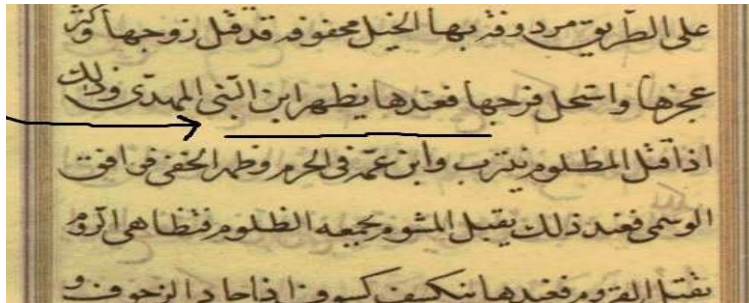 على الطريق مردوفة بها الخيل محفوفة قد قتل زوجها وكثر
عجزها واستحل فرجها فعندها يظهر ابن النبى المهدى وذلك
اذا قتل المظلوم بيثرب وابن عمه فى الحرم وظهر الخفى فوافق
الوسمى فعند ذلك يقبل المشوم بجمعه الظلوم فتظاهى الروم
بقتل القروم فعندها ينكسف كسوف اذا جاء الزحوف و